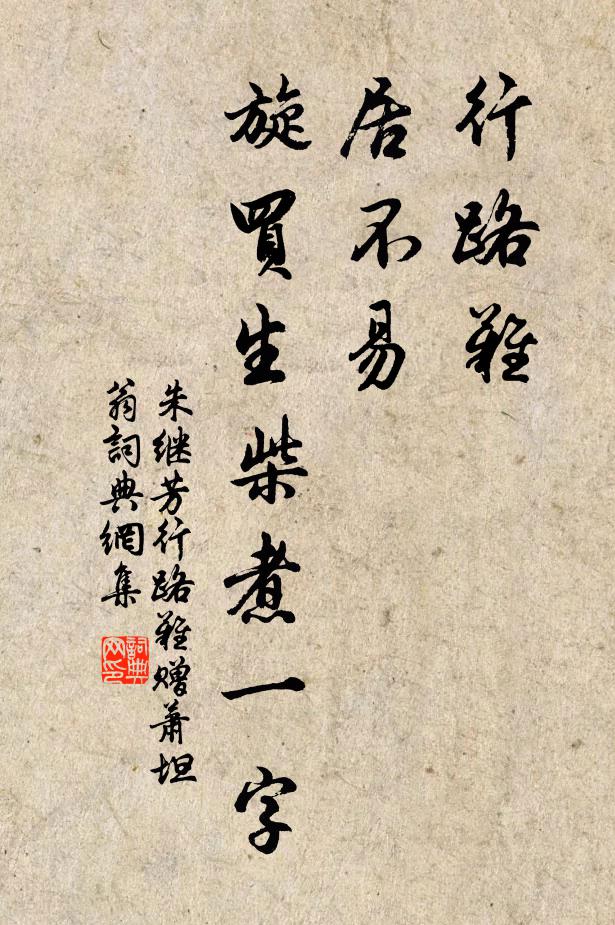 行路難
居不易
旋買生柴煮一字
朱继芳行路難赠蕭坦
翁詞典網集
詞典
网印